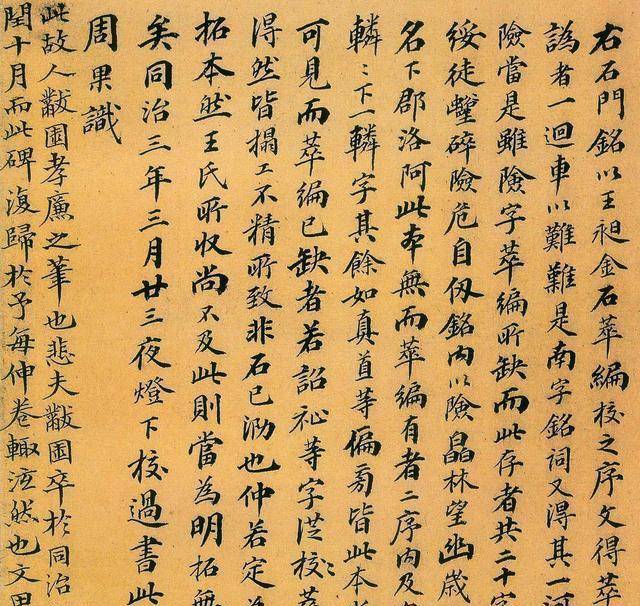 右石門銘以王昶金石萃編校之序文得萃
譌者一迴車以難難是南字銘詞又得其一河
險當是雖險字萃編所缺而此存者共二十字
綏徒蠥碎險危自仭銘內以險晶林望幽歲
名下郡洛阿此本無而萃編有者二序內及
轔〻下一轔字其餘如真首等偏旁皆此本
可見而萃編已缺者若詔祉等字洪校〻萃
得然皆搨工不精所致非石已泐也仲若定
拓本然王氏所收尚不及此則當為明拓無
矣同治三年三月廿三夜燈下校過書此
周果識
此故人黻園孝廉之筆也悲夫黻園卒於同治
閏十月而此碑復歸於予每伸卷輙泫然也文